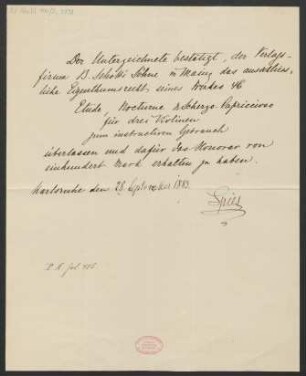 Der Unterzeichnete bestätigt, der Verlags-
firma B. Schott's Söhne in Mainz das ausschliess-
liche Eigenthumsrecht seines Werkes 46
Etude, Nocturne & Scherzo Capriccioso
für drei Violinen
zum instructiven Gebrauch
überlassen und dafür das Honorar von
einhundert Mark erhalten zu haben.
Karlsruhe den 28. September 1889.
Spies